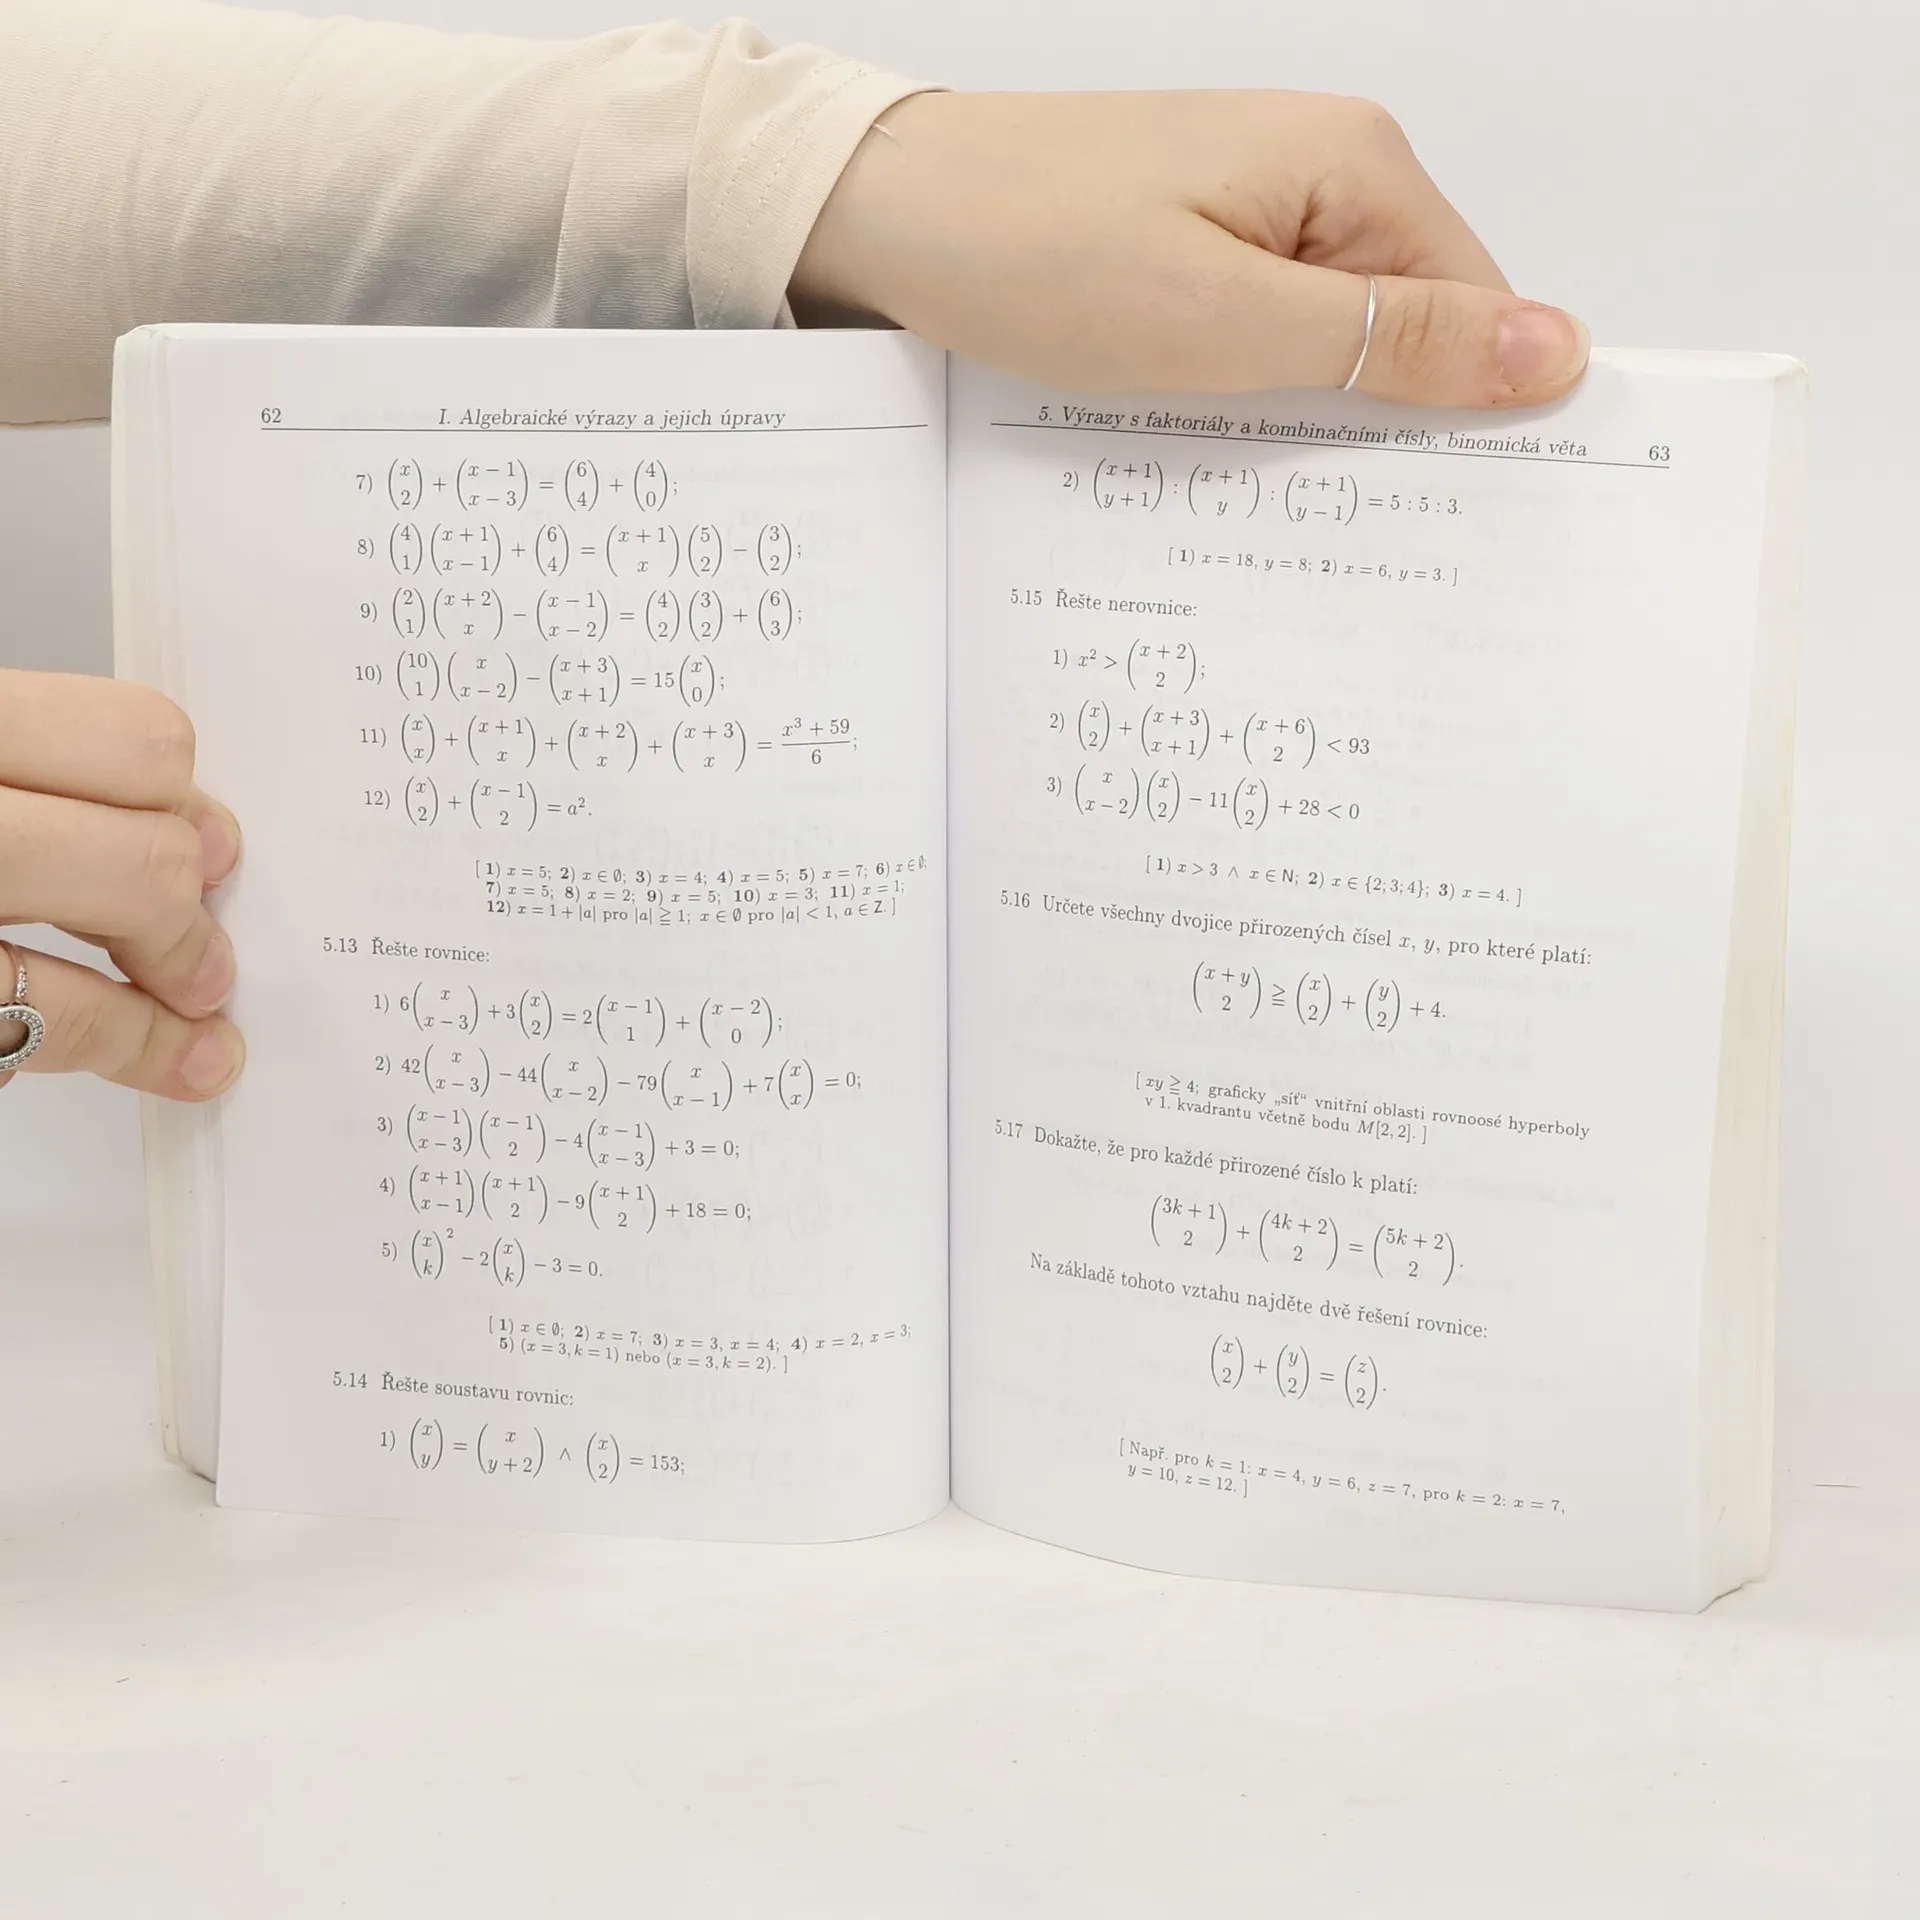 62 I. Algebraické výrazy a jejich úpravy
7) $\binom{x}{2} + \binom{x-1}{x-3} = \binom{6}{4} + \binom{4}{0}$;
8) $\binom{4}{1}\binom{x+1}{x-1} + \binom{6}{4} = \binom{x+1}{x}\binom{5}{2} - \binom{3}{2}$;
9) $\binom{2}{1}\binom{x+2}{x} - \binom{x-1}{x-2} = \binom{4}{2}\binom{3}{2} + \binom{6}{3}$;
10) $\binom{10}{1}\binom{x}{x-2} - \binom{x+3}{x+1} = 15\binom{x}{0}$;
11) $\binom{x}{x} + \binom{x+1}{x} + \binom{x+2}{x} + \binom{x+3}{x} = \frac{x^3+59}{6}$;
12) $\binom{x}{2} + \binom{x-1}{2} = a^2$.
[ 1) x = 5; 2) x ∈ ∅; 3) x = 4; 4) x = 5; 5) x = 7; 6) x ∈ ∅;
7) x = 5; 8) x = 2; 9) x = 5; 10) x = 3; 11) x = 1;
12) x = 1 + |a| pro |a| ≧ 1; x ∈ ∅ pro |a| < 1, a ∈ Z. ]
5.13 Řešte rovnice:
1) $6\binom{x}{x-3} + 3\binom{x}{2} = 2\binom{x-1}{1} + \binom{x-2}{0}$;
2) $42\binom{x}{x-3} - 44\binom{x}{x-2} - 79\binom{x}{x-1} + 7\binom{x}{x} = 0$;
3) $\binom{x-1}{x-3}\binom{x-1}{2} - 4\binom{x-1}{x-3} + 3 = 0$;
4) $\binom{x+1}{x-1}\binom{x+1}{2} - 9\binom{x+1}{2} + 18 = 0$;
5) $\binom{x}{k}^2 - 2\binom{x}{k} - 3 = 0$.
[ 1) x ∈ ∅; 2) x = 7; 3) x = 3, x = 4; 4) x = 2, x = 3;
5) (x = 3, k = 1) nebo (x = 3, k = 2). ]
5.14 Řešte soustavu rovnic:
1) $\binom{x}{y} = \binom{x}{y+2} \wedge \binom{x}{2} = 153$;
5. Výrazy s faktoriály a kombinačními čísly, binomická věta 63
2) $\binom{x+1}{y+1} : \binom{x+1}{y} : \binom{x+1}{y-1} = 5 : 5 : 3$.
[ 1) x = 18, y = 8; 2) x = 6, y = 3. ]
5.15 Řešte nerovnice:
1) $x^2 > \binom{x+2}{2}$;
2) $\binom{x}{2} + \binom{x+3}{x+1} + \binom{x+6}{2} < 93$
3) $\binom{x}{x-2}\binom{x}{2} - 11\binom{x}{2} + 28 < 0$
[ 1) x > 3 ∧ x ∈ N; 2) x ∈ {2; 3; 4}; 3) x = 4. ]
5.16 Určete všechny dvojice přirozených čísel x, y, pro které platí:
$\binom{x+y}{2} \geqq \binom{x}{2} + \binom{y}{2} + 4$.
[ xy ≧ 4; graficky „síť“ vnitřní oblasti rovnoosé hyperboly
v 1. kvadrantu včetně bodu M[2, 2]. ]
5.17 Dokažte, že pro každé přirozené číslo k platí:
$\binom{3k+1}{2} + \binom{4k+2}{2} = \binom{5k+2}{2}$.
Na základě tohoto vztahu najděte dvě řešení rovnice:
$\binom{x}{2} + \binom{y}{2} = \binom{z}{2}$.
[ Např. pro k = 1: x = 4, y = 6, z = 7, pro k = 2: x = 7,
y = 10, z = 12. ]